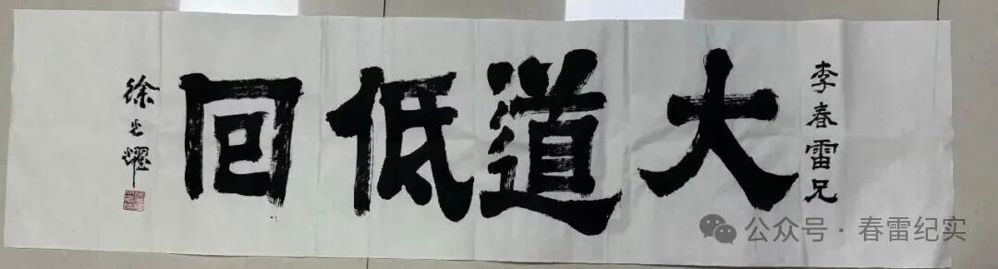 李春雷兄
大道低回
徐光耀
公众号·春雷纪实